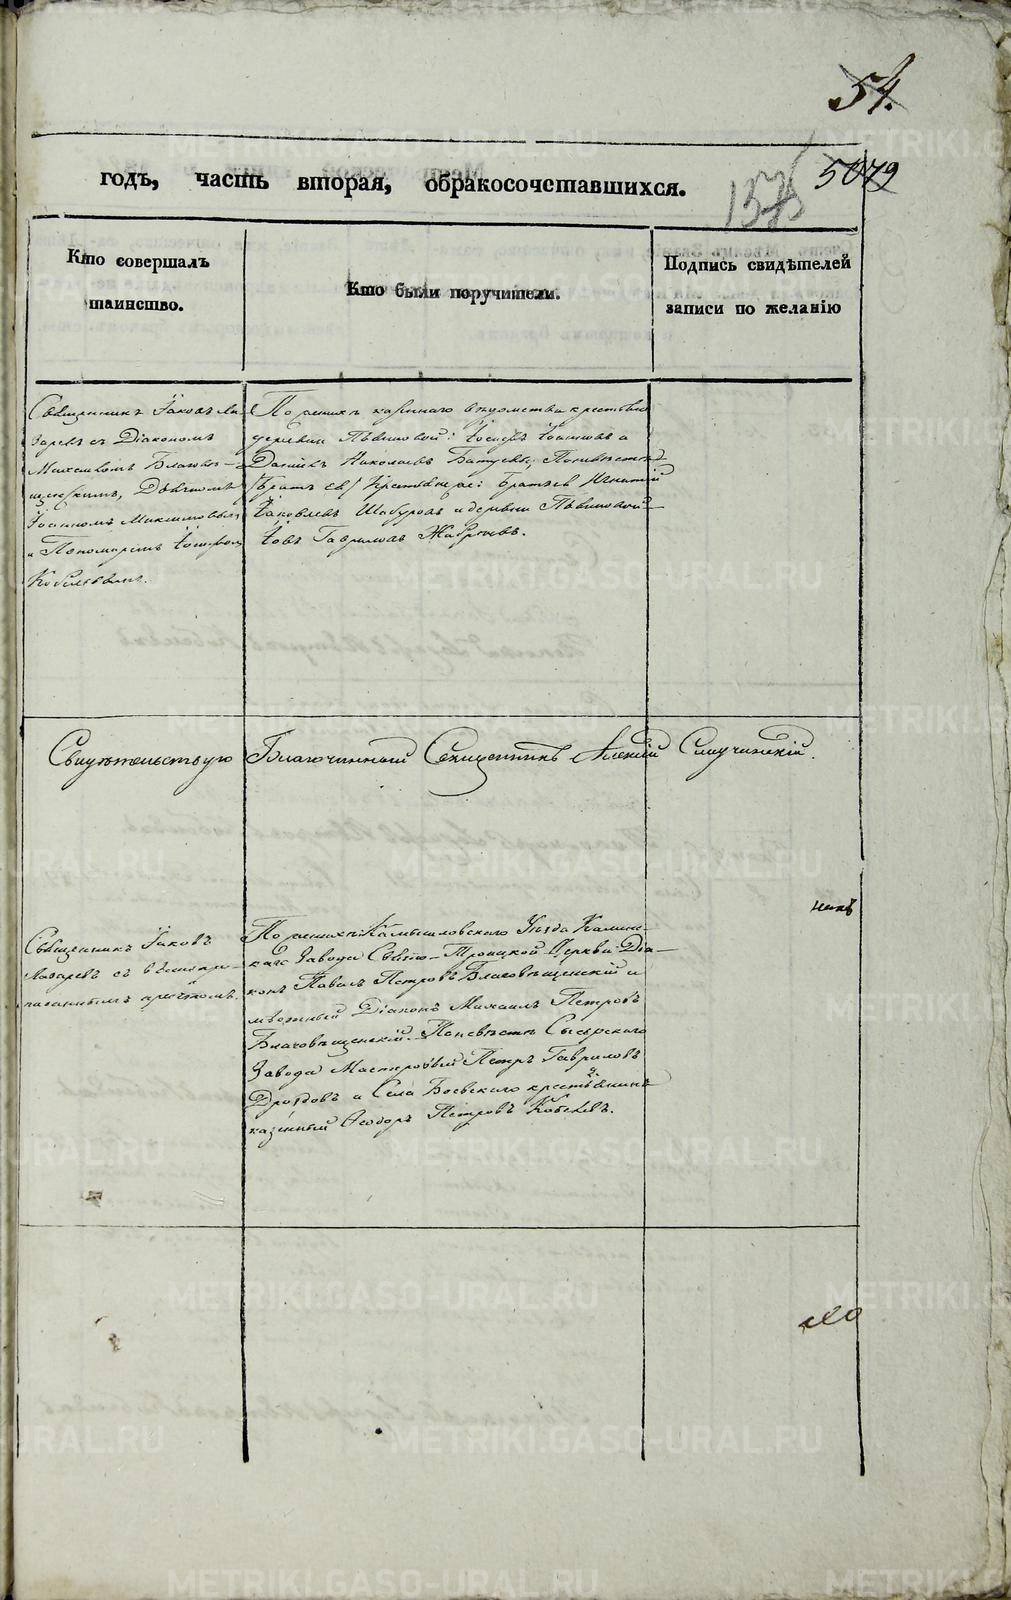 54.
5079
1375
годъ, часть вторая, обракосочетавшихся.
Кто совершалъ
таинство.
Кто были поручители.
Подпись свидѣтелей
записи по желанію
Священникъ Іаковъ Ла-
заревъ съ Діакономъ
Михаиломъ Благовѣ-
щенскимъ, Дьячкомъ
Іоанномъ
и Пономаремъ Іосифомъ
По женихѣ казеннаго вѣдомства крестьяне
деревни Пьянковой: Іосифъ Іоанновъ и
Даніилъ Николаевъ Батуевы, По невѣстѣ
Братъ ея Крестьянс: Братьевъ Игнатій
Іаковлевъ Шабуровъ и деревни Пьянковой
Іовъ Гавриловъ
Свидѣтельствую Благочинный Священникъ Алексій
Священникъ Іаковъ
Лазаревъ съ вышепи-
писаннымъ причтомъ.
По женихѣ Камышловскаго Уѣзда Камен-
скаго Завода Свято-Троицкой Церкви Діа-
конъ Павелъ Петровъ Благовѣщенскій и
мѣстный Діаконъ Михаилъ Петровъ
Благовѣщенскій. По невѣстѣ Сысерскаго
Завода Мастеровый Петръ Гавриловъ
Дроздовъ и Села Боевскаго крестьянинъ
казенный Ѳеодоръ Петровъ Кобелевъ.